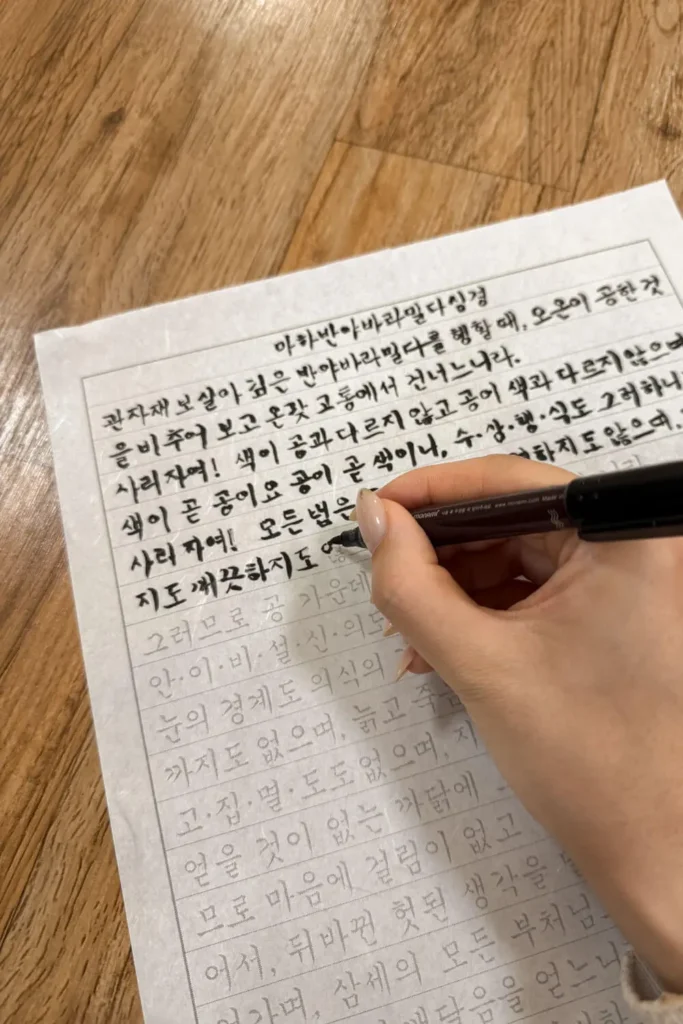 마하반야바라밀다심경
관자재 보살이 깊은 반야바라밀다를 행할 때, 오온이 공한 것
을 비추어 보고 온갖 고통에서 건너느니라.
사리자여! 색이 공과 다르지 않고 공이 색과 다르지 않으며
색이 곧 공이요 공이 곧 색이니, 수·상·행·식도 그러하니
사리자여! 모든 법은 하지도 않으며,
지도 깨끗하지도
그러므로 공 가운데
안·이·비·설·신·의도
눈의 경계도 의식의
까지도 없으며, 늙고 죽
고·집·멸·도도 없으며, 지
얻을 것이 없는 까닭에
므로 마음에 걸림이 없고
어서, 뒤바뀐 헛된 생각을
삼세의 모든 부처님
깨달음을 얻느니